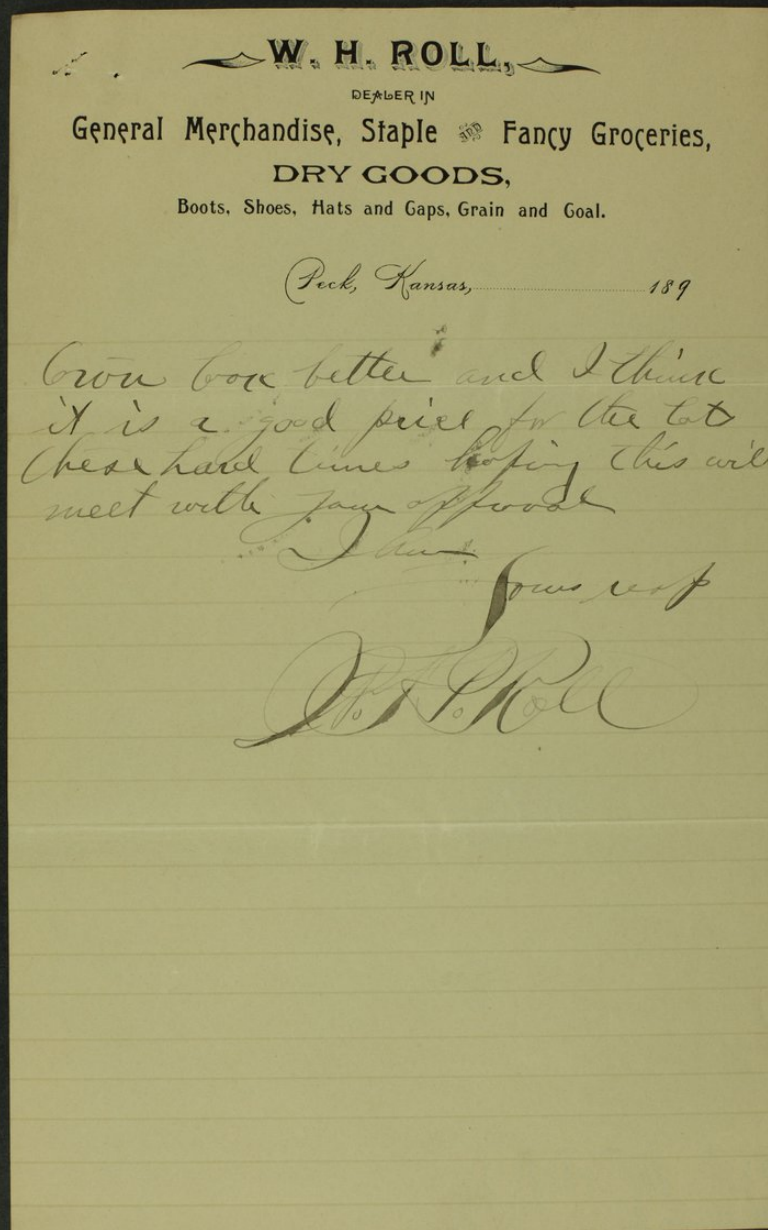 W. H. ROLL,
DEALER IN
General Merchandise, Staple AND Fancy Groceries,
DRY GOODS,
Boots, Shoes, Hats and Caps, Grain and Coal.
Peck, Kansas, 189
better and I think
it is a good price for the lot
these hard times hoping this will
meet with your approval
I am
Yours resp
Roll